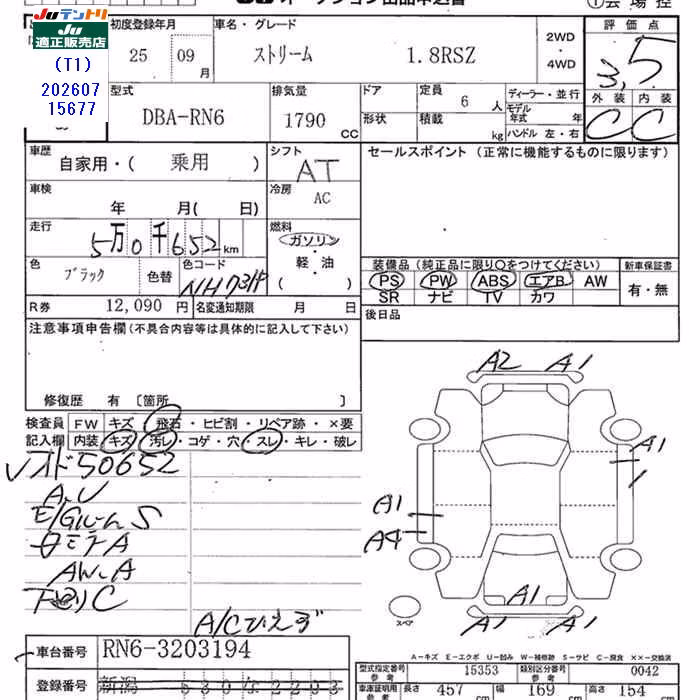 Juテントリ
Ju
適正販売店
(T1)
202607
15677
初度登録年月
車名・グレード
評価点
25 09 月
ストリーム 1.8RSZ
2WD
4WD
3,5
外装 内装
C C
型式
DBA-RN6
排気量
1790 CC
ドア
形状
定員 6 人
積載 kg
ディーラー・並行
モデル年式 年
ハンドル 左・右
車歴
自家用・( 乗用 )
シフト
AT
セールスポイント (正常に機能するものに限ります)
車検
年 月( 日)
冷房
AC
走行
5万0千652km
燃料
ガソリン
軽・油
( )
色
ブラック
色替
色コード
NH731P
装備品(純正品に限り○をつけてください)
新車保証書
PS PW ABS エアB. AW
SR ナビ TV カワ
有・無
R券 12,090 円
名変通知期限 月 日
後日品
注意事項申告欄(不具合内容等は具体的に記入して下さい)
修復歴 有 〔箇所 〕
検査員
記入欄
FW キズ・飛石・ヒビ割・リペア跡・×要
内装 キズ・汚レ・コゲ・穴・スレ・キレ・破レ
A2 A1
A1
A1
A4
A1
A1 A1
スペア
メド50652
A.U
E/Gルーム S
AW.A
下廻りC
A/Cひえず
A-キズ E-エクボ U-凹み W-補修跡 S-サビ C-腐食 ××-交換済
車台番号 RN6-3203194
登録番号 新潟 530 な 2293
型式指定番号 参考 15353
類別区分番号 参考 0042
車庫証明用 参考
長さ 457 cm
幅 169 cm
高さ 154 cm